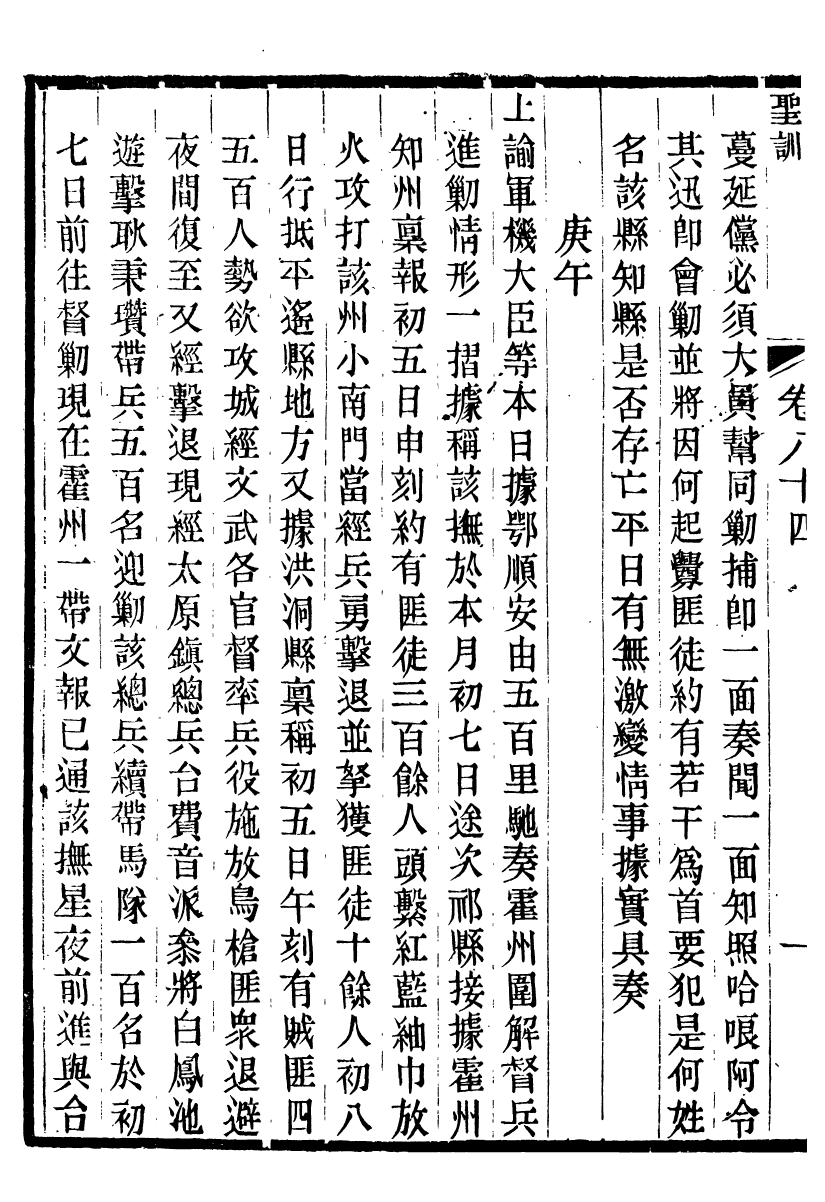 聖訓 卷八十四 一
蔓延儻必須大員幫同勦捕卽一面奏聞一面知照哈哴阿令
其迅卽會勦並將因何起釁匪徒約有若干爲首要犯是何姓
名該縣知縣是否存亡平日有無激變情事據實具奏
庚午
上諭軍機大臣等本日據鄂順安由五百里馳奏霍州圍解督兵
進勦情形一摺據稱該撫於本月初七日途次祁縣接據霍州
知州稟報初五日申刻約有匪徒三百餘人頭繫紅藍紬巾放
火攻打該州小南門當經兵勇擊退並拏獲匪徒十餘人初八
日行抵平遙縣地方又據洪洞縣稟稱初五日午刻有賊匪四
五百人勢欲攻城經文武各官督率兵役施放鳥槍匪衆退避
夜間復至又經擊退現經太原鎭總兵台費音派叅將白鳳池
遊擊耿秉瓚帶兵五百名迎勦該總兵續帶馬隊一百名於初
七日前往督勦現在霍州一帶文報已通該撫星夜前進與台